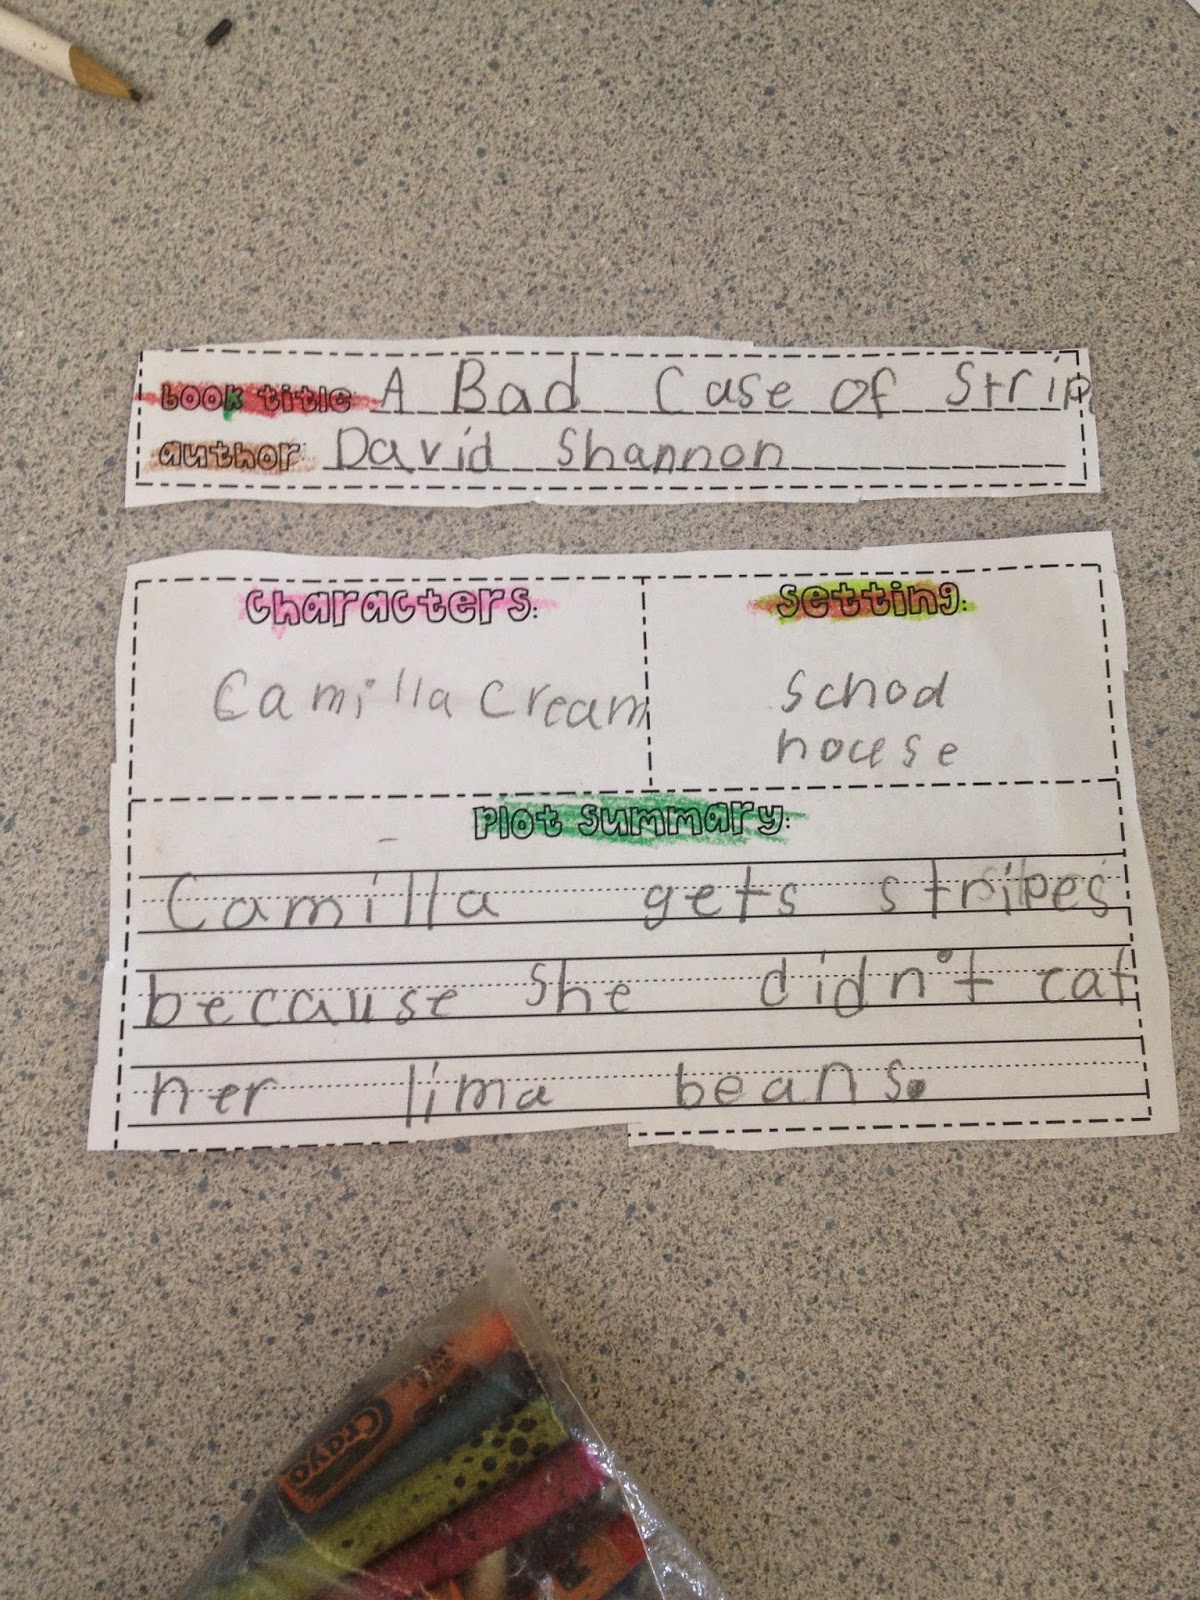 book title A Bad Case of Strip
author: David Shannon
Characters:
Camilla Cream
Setting:
School
house
Plot Summary:
Camilla gets stripes
because She didn't eat
her lima beans.
Crayo